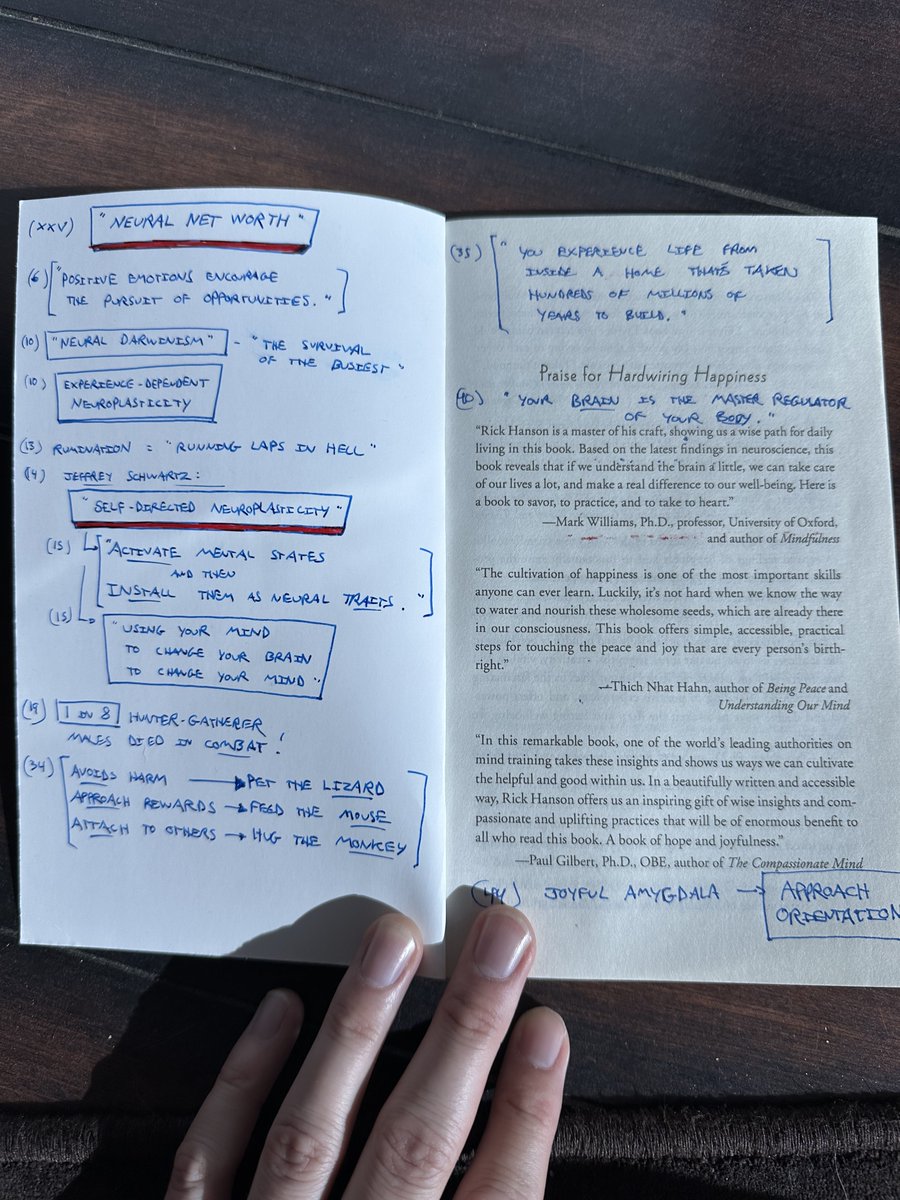 (XXV) "NEURAL NET WORTH"
(6) "POSITIVE EMOTIONS ENCOURAGE
THE PURSUIT OF OPPORTUNITIES."
(10) "NEURAL DARWINISM" - "THE SURVIVAL
OF THE BUSIEST"
(10) EXPERIENCE-DEPENDENT
NEUROPLASTICITY
(13) RUMINATION = "RUNNING LAPS IN HELL"
(14) JEFFREY SCHWARTZ:
"SELF-DIRECTED NEUROPLASTICITY"
(15) "ACTIVATE MENTAL STATES
AND THEN
INSTALL THEM AS NEURAL TRAITS."
(15) "USING YOUR MIND
TO CHANGE YOUR BRAIN
TO CHANGE YOUR MIND"
(19) 1 IN 8 HUNTER-GATHERER
MALES DIED IN COMBAT!
(34) AVOIDS HARM → PET THE LIZARD
APPROACH REWARDS → FEED THE MOUSE
ATTACH TO OTHERS → HUG THE MONKEY
(35) "YOU EXPERIENCE LIFE FROM
INSIDE A HOME THAT'S TAKEN
HUNDREDS OF MILLIONS OF
YEARS TO BUILD."
Praise for Hardwiring Happiness
(40) "YOUR BRAIN IS THE MASTER REGULATOR
OF YOUR BODY."
"Rick Hanson is a master of his craft, showing us a wise path for daily
living in this book. Based on the latest findings in neuroscience, this
book reveals that if we understand the brain a little, we can take care
of our lives a lot, and make a real difference to our well-being. Here is
a book to savor, to practice, and to take to heart."
—Mark Williams, Ph.D., professor, University of Oxford,
and author of Mindfulness
"The cultivation of happiness is one of the most important skills
anyone can ever learn. Luckily, it's not hard when we know the way
to water and nourish these wholesome seeds, which are already there
in our consciousness. This book offers simple, accessible, practical
steps for touching the peace and joy that are every person's birth-
right."
—Thich Nhat Hahn, author of Being Peace and
Understanding Our Mind
"In this remarkable book, one of the world's leading authorities on
mind training takes these insights and shows us ways we can cultivate
the helpful and good within us. In a beautifully written and accessible
way, Rick Hanson offers us an inspiring gift of wise insights and com-
passionate and uplifting practices that will be of enormous benefit to
all who read this book. A book of hope and joyfulness."
—Paul Gilbert, Ph.D., OBE, author of The Compassionate Mind
(44) JOYFUL AMYGDALA → APPROACH
ORIENTATION